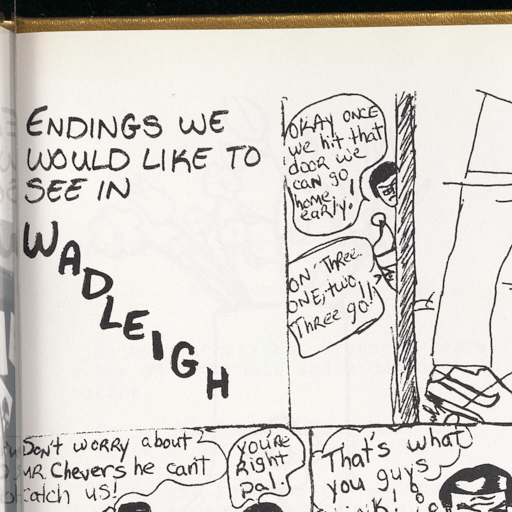 ENDINGS WE
WOULD LIKE TO
SEE IN
WADLEIGH
OKAY ONCE
we hit that
door we
can go
home
early!
ON THREE.
ONE, two
Three go!!
Don't worry about
MR. Chevers he can't
catch us!
you're
Right
pal.
That's what
you guys